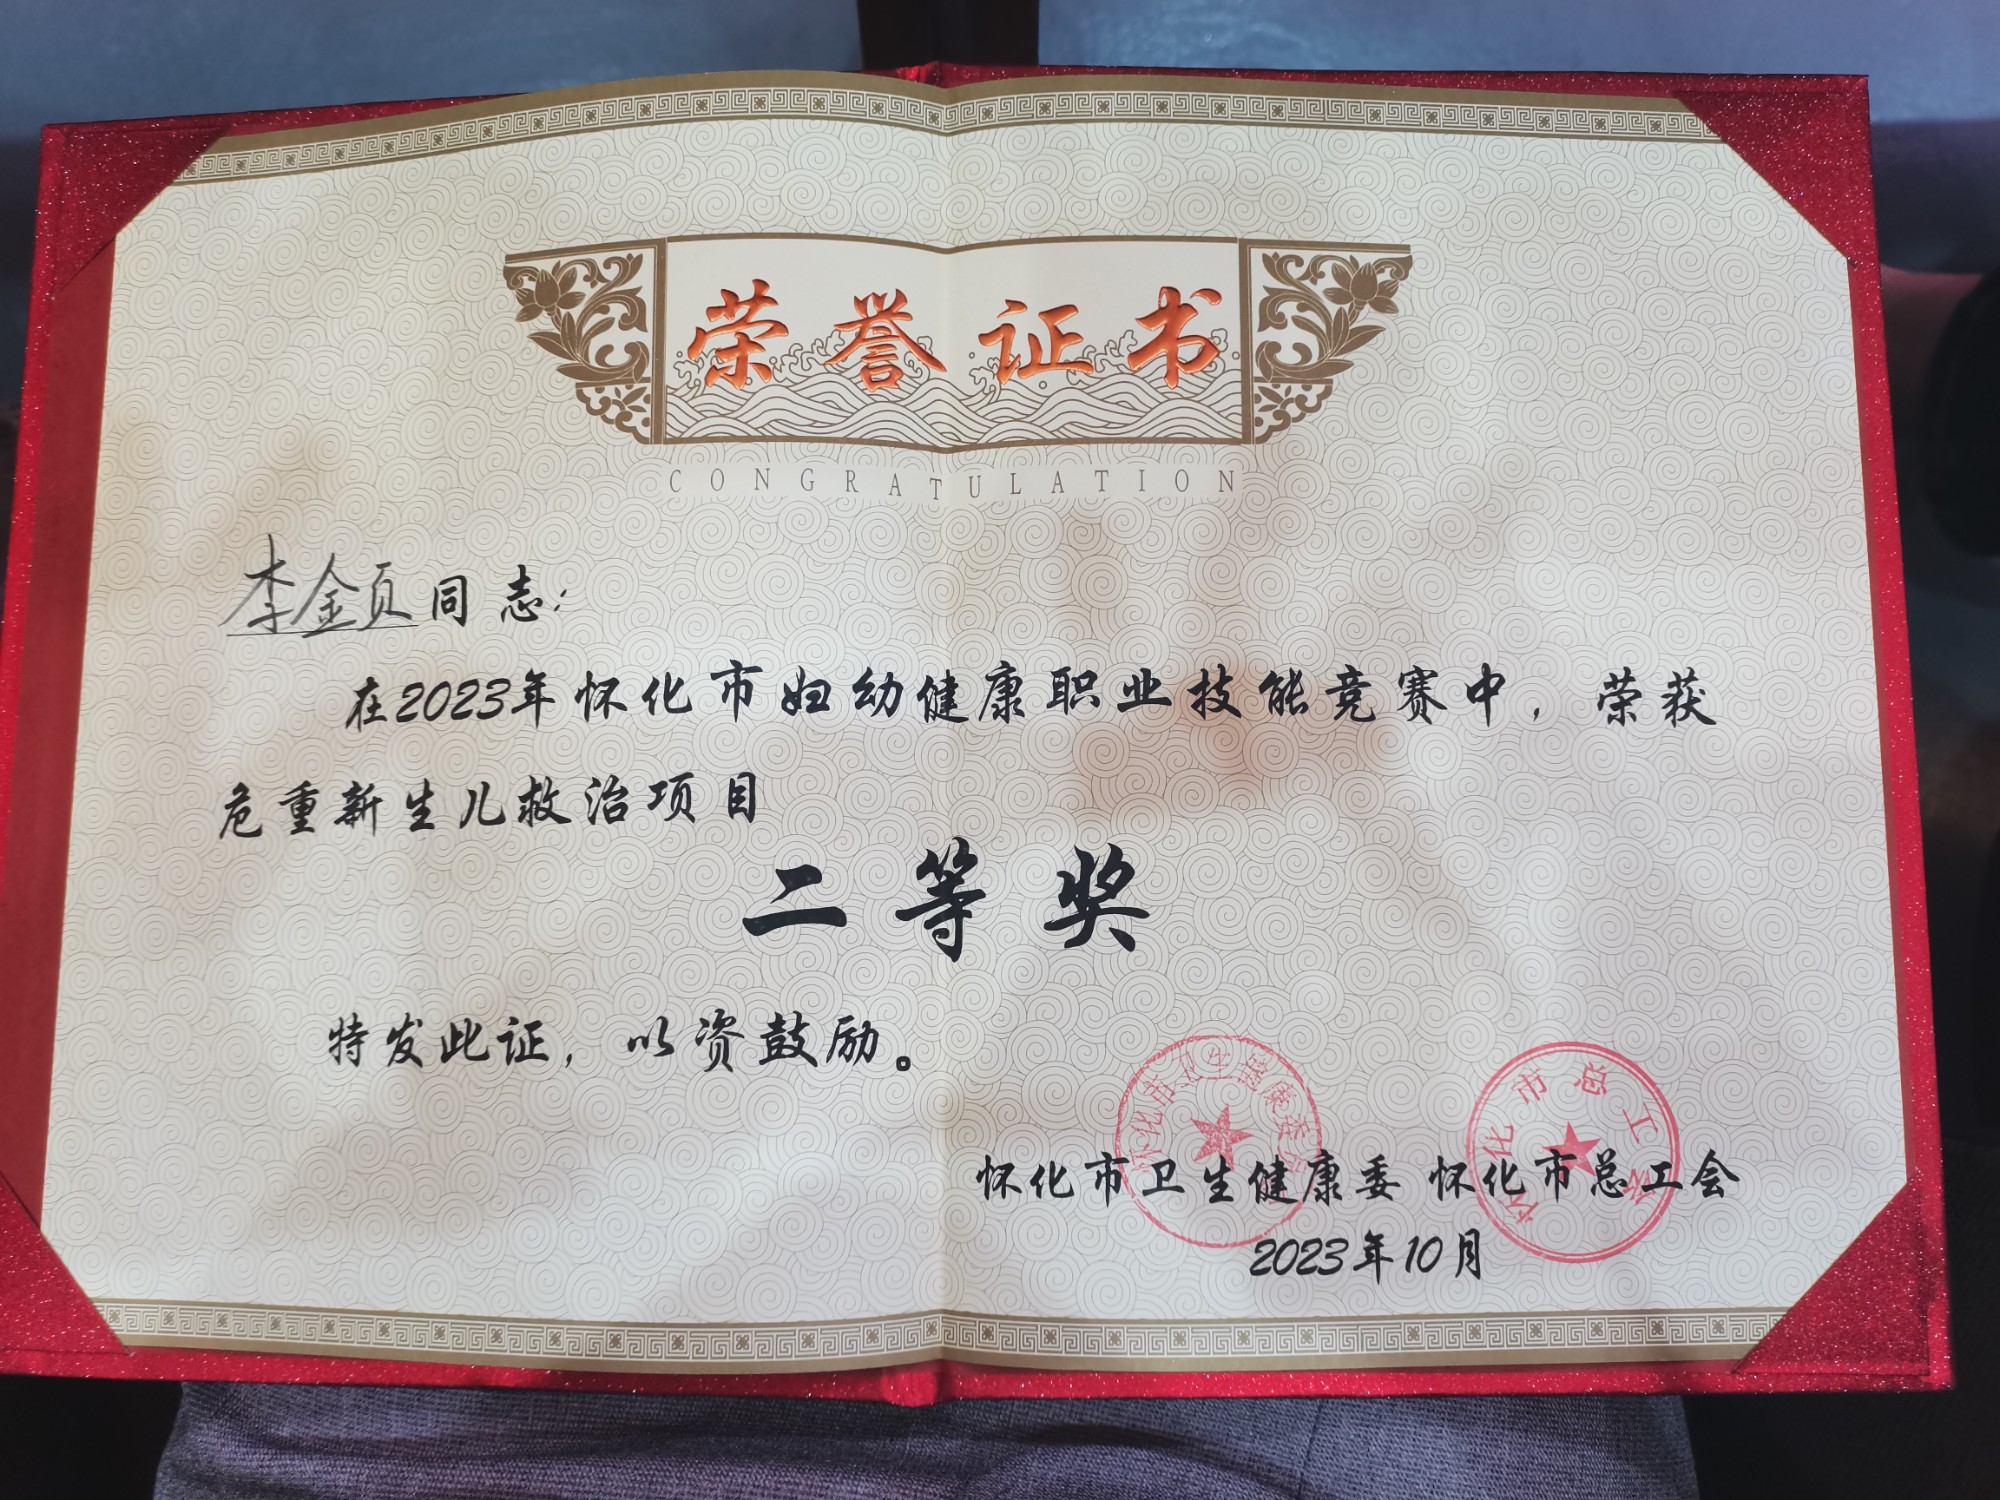 荣誉证书
CONGRATULATION
李金页同志:
在2023年怀化市妇幼健康职业技能竞赛中，荣获
危重新生儿救治项目
二等奖
特发此证，以资鼓励。
怀化市卫生健康委员
怀化市总工会
怀化市卫生健康委 怀化市总工会
2023年10月